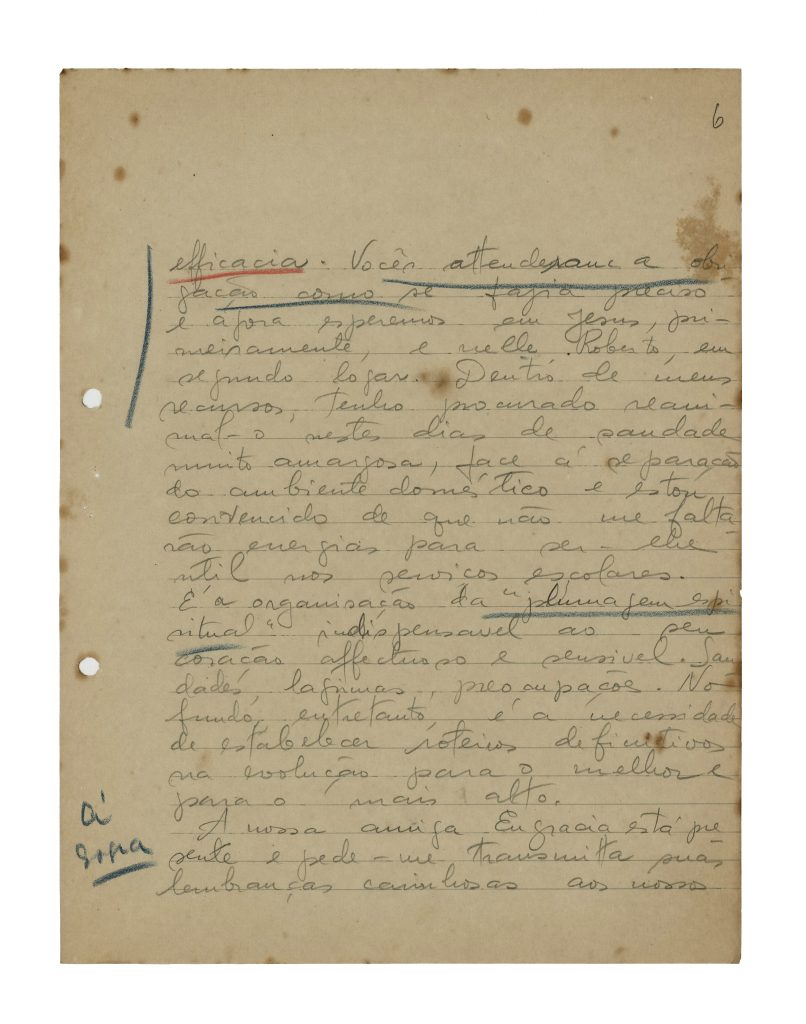 6
efficacia. Vocês attenderam a obri-
gação como se fazia preciso
e agora esperemos em Jesus, pri-
meiramente, e nelle Roberto, em
segundo logar. Dentro de meus
recursos, tenho procurado reani-
mal-o nestes dias de saudade
muito amargosa, face á separação
do ambiente doméstico e estou
convencido de que não me falta-
rão energias para ser-lhe
útil nos serviços escolares.
É a organisação da "plumagem espi-
ritual" indispensavel ao seu
coração affectuoso e sensivel. Sau-
dades, lagrimas, preocupações. No
fundo, entretanto, é a necessidade
de estabelecer roteiros definitivos
na evolução para o melhor e
para o mais alto.
A nossa amiga Engracia está pre
sente e pede-me transmitta suas
lembranças carinhosas aos nossos